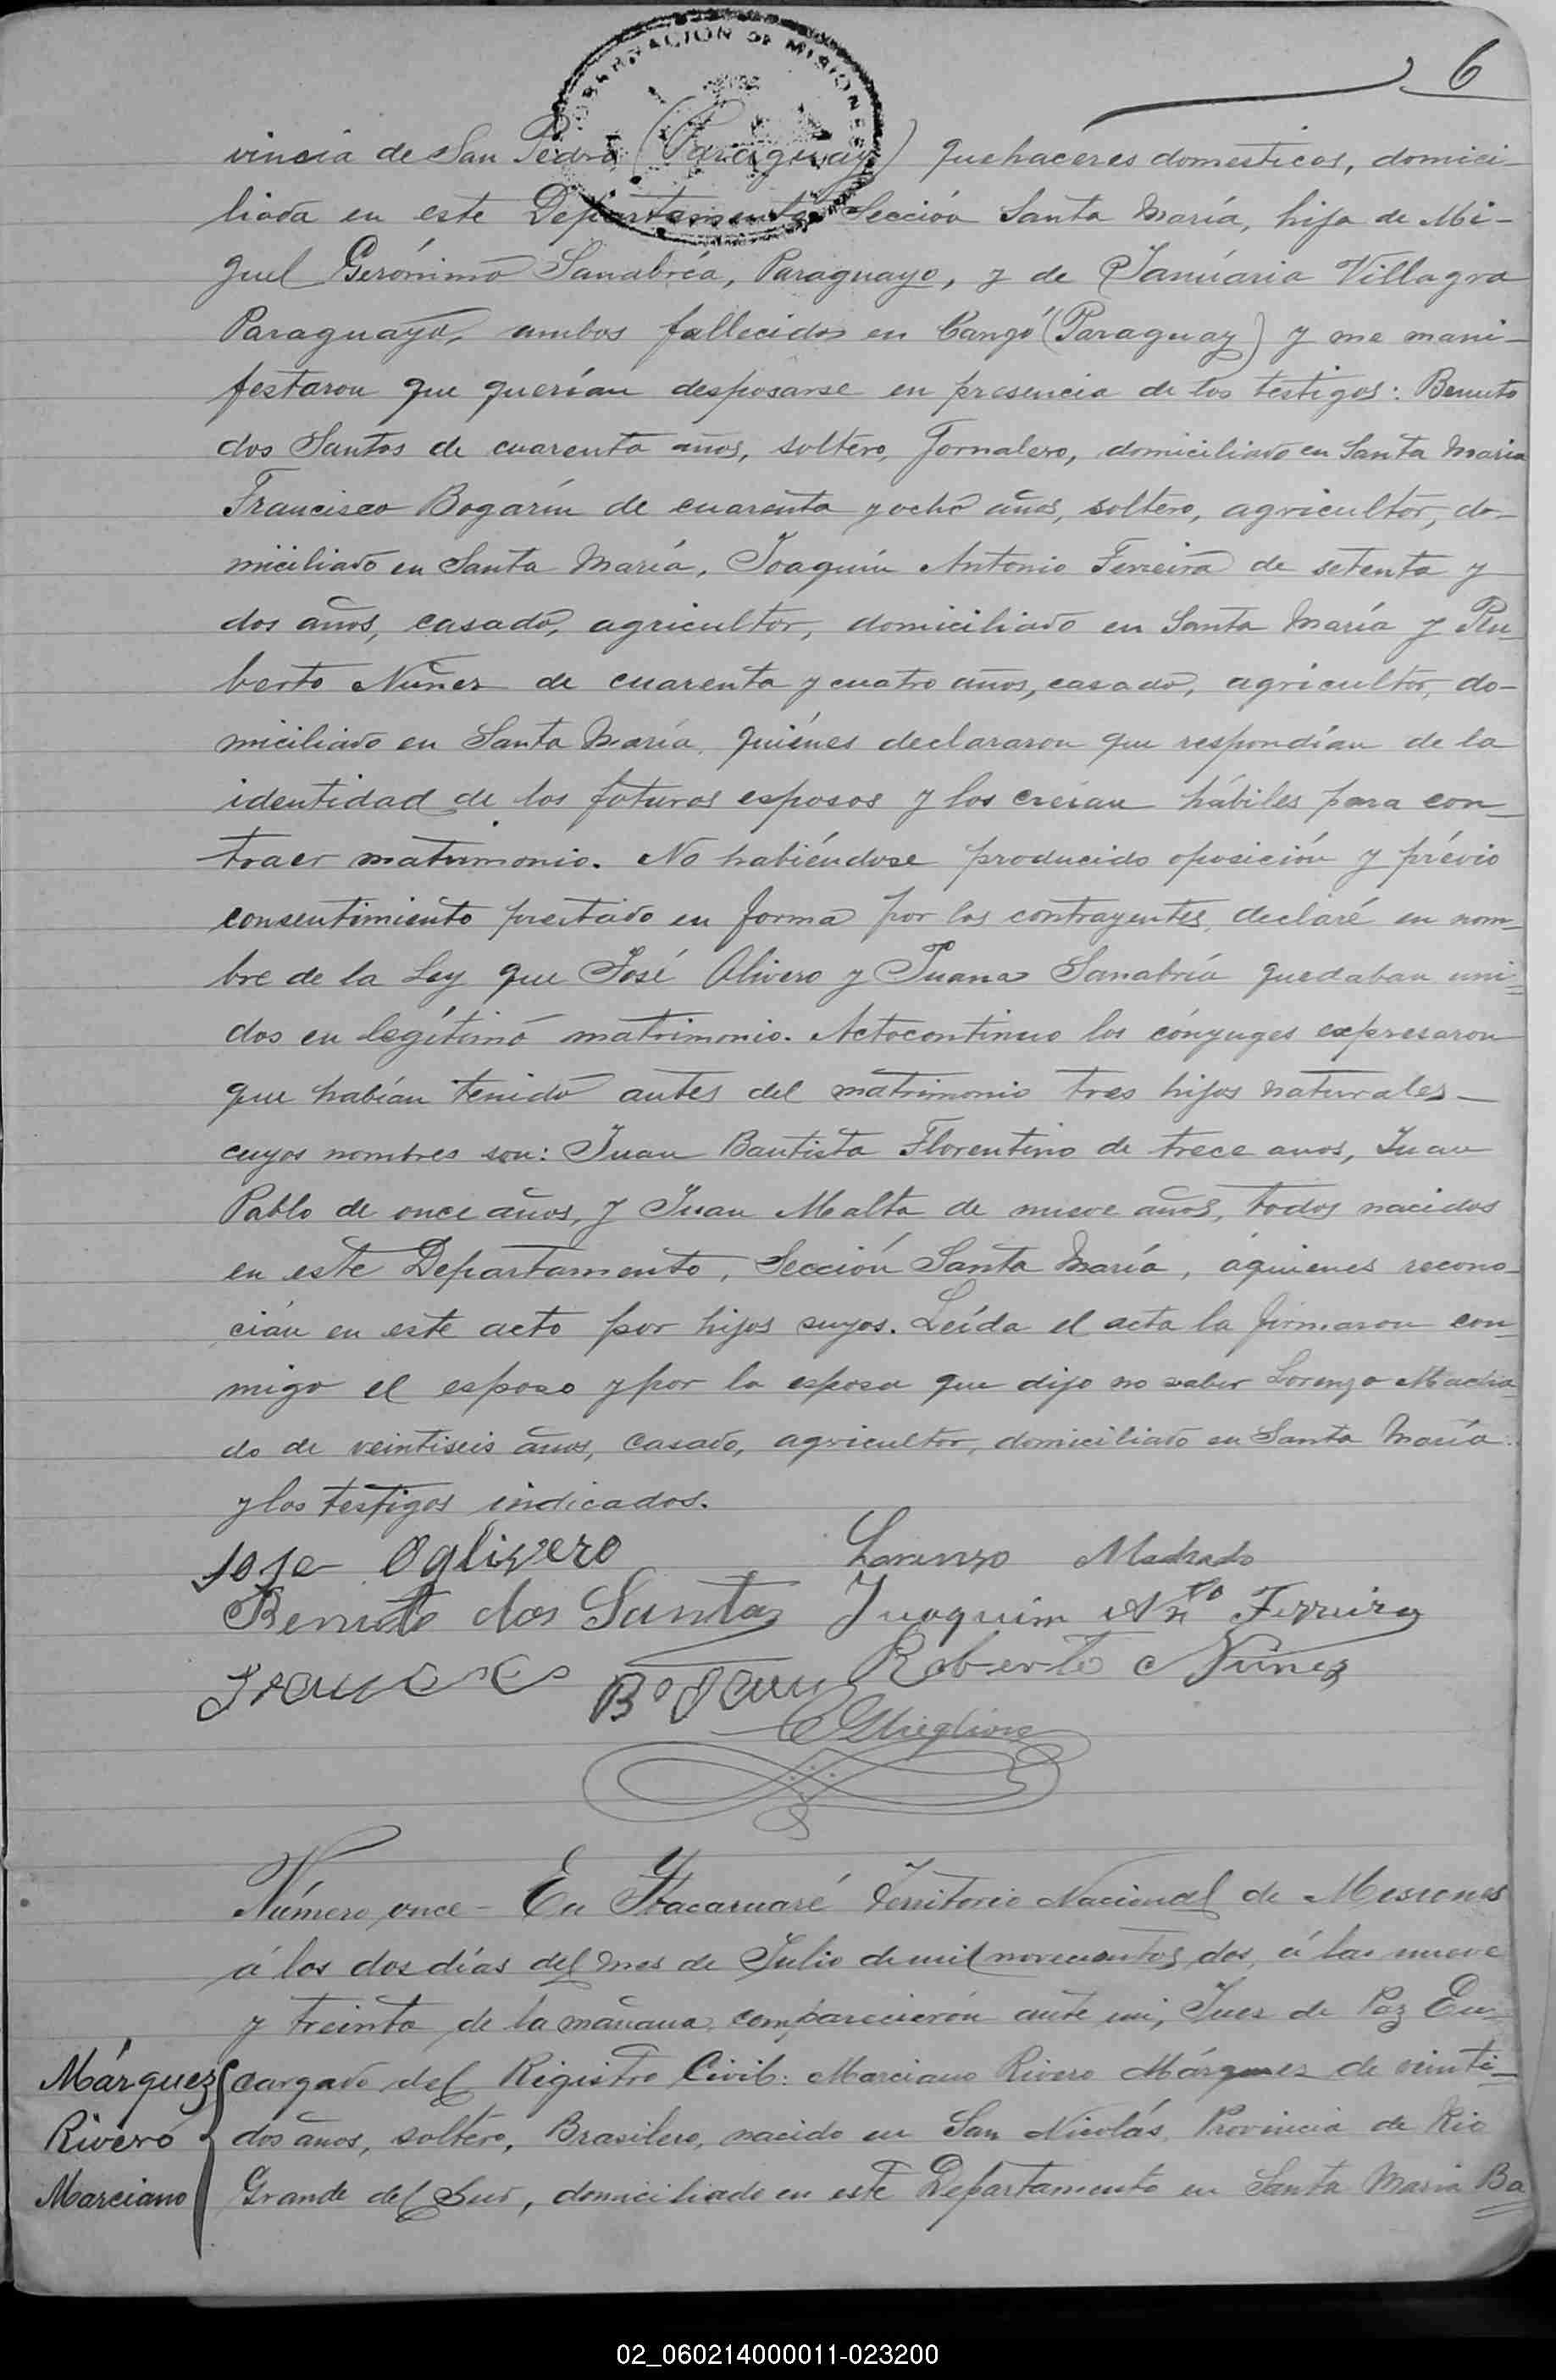 GOBERNACION DE MISIONES
6
vincia de San Pedro (Paraguay) quehaceres domesticos, domici-
liada en este Departamento Sección Santa María, hija de Mi-
guel Gerónimo Sanabria, Paraguayo, y de Januaria Villagra
Paraguaya, ambos fallecidos en Cangó (Paraguay) y me mani-
festaron que querían desposarse en presencia de los testigos: Benito
dos Santos de cuarenta años, soltero, Jornalero, domiciliado en Santa Maria
Francisco Bogarín de cuarenta y ocho años, soltero, agricultor, do-
miciliado en Santa María, Joaquín Antonio Ferreira de setenta y
dos años, casado, agricultor, domiciliado en Santa María y Ru-
berto Nuñez de cuarenta y cuatro años, casado, agricultor, do-
miciliado en Santa María, quiénes declararon que respondían de la
identidad de los futuros esposos y los creían hábiles para con-
traer matrimonio. No habiéndose producido oposición y prévio
consentimiento prestado en forma por los contrayentes, declaré en nom-
bre de la Ley que José Olivero y Juana Sanabría quedaban uni-
dos en legítimo matrimonio. Actocontinuo los cónyuges expresaron
que habían tenido antes del matrimonio tres hijos naturales
cuyos nombres son: Juan Bautista Florentino de trece anos, Juan
Pablo de once años, y Juan Malta de nueve años, todos nacidos
en este Departamento, Sección Santa María, áquienes recono-
cían en este acto por hijos suyos. Leída el acta la firmaron con-
migo el esposo y por la esposa que dijo no saber Lorenzo Macha-
do de veintiseis años, casado, agricultor, domiciliado en Santa María
y los testigos indicados.
Jose Oglivero Lorenzo Machado
Benito dos Santos Juaquim Anto Ferreira
Francisco Bogarin Roberto Nuñez
Número once - En Itacaruaré Territorio Nacional de Misiones
á los dos días del mes de Julio de mil novecientos dos, á las nueve
y treinta de la mañana comparecierón ante mi, Juez de Paz En-
cargado del Registro Civil: Marciano Rivero Márquez de veinti-
dos años, soltero, Brasilero, nacido en San Nicolás, Provincia de Rio
Grande del Sud, domiciliado en este Departamento en Santa Maria Ba
Márquez
Rivero
Marciano
02_060214000011-023200